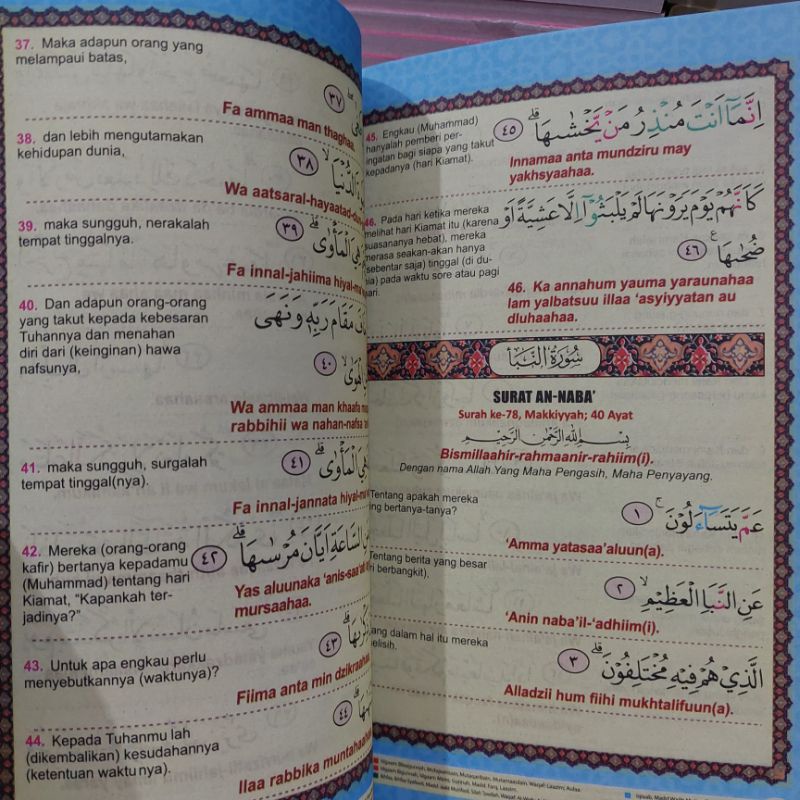 37. Maka adapun orang yang
melampaui batas,
٣٧
Fa ammaa man thaghaa.
38. dan lebih mengutamakan
kehidupan dunia,
الدُّنْيَا ٣٨
Wa aatsaral-hayaatad-du
39. maka sungguh, nerakalah
tempat tinggalnya.
هِيَ الْمَأْوٰى ٣٩
Fa innal-jahiima hiyal-ma
40. Dan adapun orang-orang
yang takut kepada kebesaran
Tuhannya dan menahan
diri dari (keinginan) hawa
nafsunya,
مَقَامَ رَبِّهٖ وَنَهَى
الْهَوٰى ٤٠
Wa ammaa man khaafa ma
rabbihii wa nahan-nafsa
41. maka sungguh, surgalah
tempat tinggal(nya).
هِيَ الْمَأْوٰى ٤١
Fa innal-jannata hiyal-ma
42. Mereka (orang-orang
kafir) bertanya kepadamu
(Muhammad) tentang hari
Kiamat, “Kapankah ter-
jadinya?”
السَّاعَةِ اَيَّانَ مُرْسٰىهَا ٤٢
Yas aluunaka ‘anis-saa‘at
mursaahaa.
43. Untuk apa engkau perlu
menyebutkannya (waktunya)?
٤٣
Fiima anta min dzikraahaa
44. Kepada Tuhanmu lah
(dikembalikan) kesudahannya
(ketentuan waktunya).
٤٤
Ilaa rabbika muntahaaha
45. Engkau (Muhammad)
hanyalah pemberi per-
ingatan bagi siapa yang takut
kepadanya (hari Kiamat).
اِنَّمَآ اَنْتَ مُنْذِرُ مَنْ يَّخْشٰىهَا ٤٥
Innamaa anta mundziru may
yakhsyaahaa.
46. Pada hari ketika mereka
melihat hari Kiamat itu (karena
suasananya hebat), mereka
merasa seakan-akan hanya
(sebentar saja) tinggal (di du-
nia) pada waktu sore atau pagi
hari.
كَاَنَّهُمْ يَوْمَ يَرَوْنَهَا لَمْ يَلْبَثُوْٓا اِلَّا عَشِيَّةً اَوْ
ضُحٰىهَا ٤٦
46. Ka annahum yauma yaraunahaa
lam yalbatsuu illaa ‘asyiyyatan au
dluhaahaa.
سُوْرَةُ النَّبَأِ
SURAT AN-NABA’
Surah ke-78, Makkiyyah; 40 Ayat
بِسْمِ اللّٰهِ الرَّحْمٰنِ الرَّحِيْمِ
Bismillaahir-rahmaanir-rahiim(i).
Dengan nama Allah Yang Maha Pengasih, Maha Penyayang.
Tentang apakah mereka
ing bertanya-tanya?
عَمَّ يَتَسَاۤءَلُوْنَ ١
‘Amma yatasaa’aluun(a).
Tentang berita yang besar
ri berbangkit),
عَنِ النَّبَاِ الْعَظِيْمِ ٢
‘Anin naba’il-‘adhiim(i).
ang dalam hal itu mereka
elisih.
الَّذِيْ هُمْ فِيْهِ مُخْتَلِفُوْنَ ٣
Alladzii hum fiihi mukhtalifuun(a).